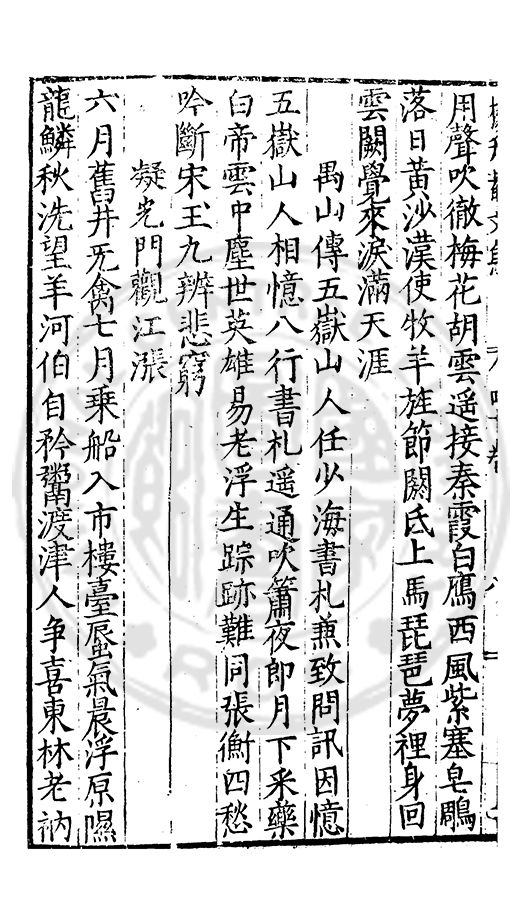 用聲吹徹梅花胡雲遥接秦霞白鴈西風紫塞皂鵰
落日黃沙漢使牧羊旌節閼氏上馬琵琶夢裡身回
雲闕覺來淚滿天涯
禺山傳五嶽山人任少海書札兼致問訊因憶
五嶽山人相憶八行書札遥通吹簫夜郎月下采藥
白帝雲中塵世英雄易老浮生踪跡難同張衡四愁
吟斷宋玉九辨悲窮
凝光門觀江漲
六月舊井旡禽七月乗船入市樓臺蜃氣晨浮原隰
龍鱗秋洗望羊河伯自矜鬻渡津人争喜東林老衲